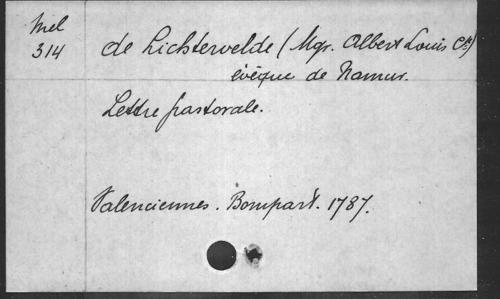 Mel
314
de Lichtervelde (Mgr. Albert Louis Cte)
évêque de Namur.
Lettre pastorale.
Valenciennes. Bompart. 1787.